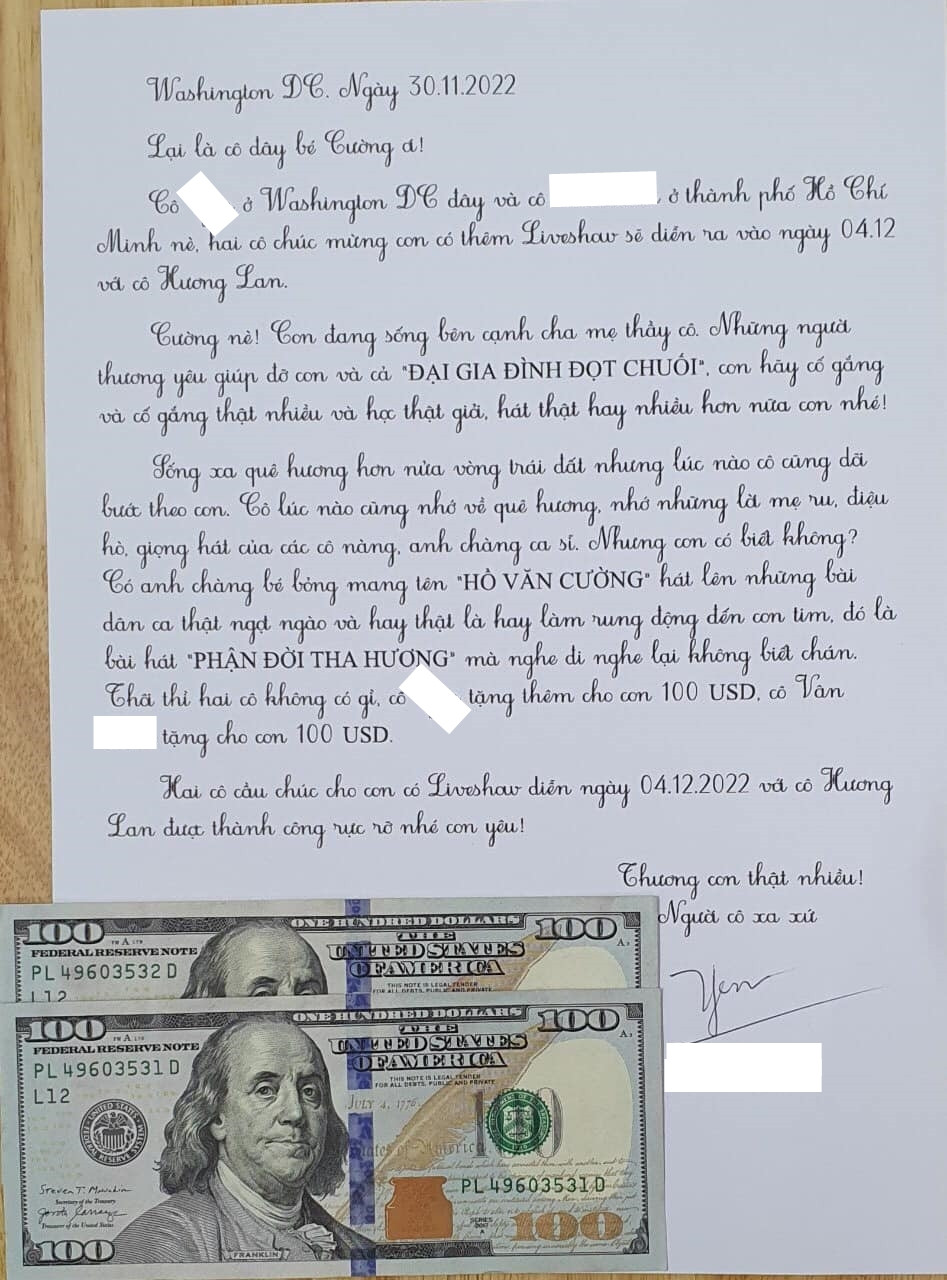 Washington DC. Ngày 30.11.2022
Lại là cô đây bé Cường ơi!
Cô ở Washington DC đây và cô ở thành phố Hồ Chí
Minh nè, hai cô chúc mừng con có thêm Liveshow sẽ diễn ra vào ngày 04.12
với cô Hương Lan.
Cường nè! Con đang sống bên cạnh cha mẹ thầy cô. Những người
thương yêu giúp đỡ con và cả "ĐẠI GIA ĐÌNH ĐỌT CHUỐI", con hãy cố gắng
và cố gắng thật nhiều và học thật giỏi, hát thật hay nhiều hơn nữa con nhé!
Sống xa quê hương hơn nửa vòng trái đất nhưng lúc nào cô cũng dõi
bước theo con. Cô lúc nào cũng nhớ về quê hương, nhớ những lời mẹ ru, điệu
hò, giọng hát của các cô nàng, anh chàng ca sĩ. Nhưng con có biết không?
Có anh chàng bé bỏng mang tên "HỒ VĂN CƯỜNG" hát lên những bài
dân ca thật ngọt ngào và hay thật là hay làm rung động đến con tim, đó là
bài hát "PHẬN ĐỜI THA HƯƠNG" mà nghe đi nghe lại không biết chán.
Thôi thì hai cô không có gì, cô tặng thêm cho con 100 USD, cô Vân
tặng cho con 100 USD.
Hai cô cầu chúc cho con có Liveshow diễn ngày 04.12.2022 với cô Hương
Lan được thành công rực rỡ nhé con yêu!
Thương con thật nhiều!
Người cô xa xứ
Yen
100 ONE HUNDRED DOLLARS 100
FEDERAL RESERVE NOTE
THE
UNITED STATES
OF AMERICA
PL 49603532 D
L12
THIS NOTE IS LEGAL TENDER
FOR ALL DEBTS, PUBLIC AND PRIVATE
100 ONE HUNDRED DOLLARS 100
FEDERAL RESERVE NOTE
THE
UNITED STATES
OF AMERICA
PL 49603531 D
L12
THIS NOTE IS LEGAL TENDER
FOR ALL DEBTS, PUBLIC AND PRIVATE
JULY 4, 1776
PL 49603531 D
Secretary of the Treasury
Treasurer of the United States
SERIES
100 FRANKLIN 100